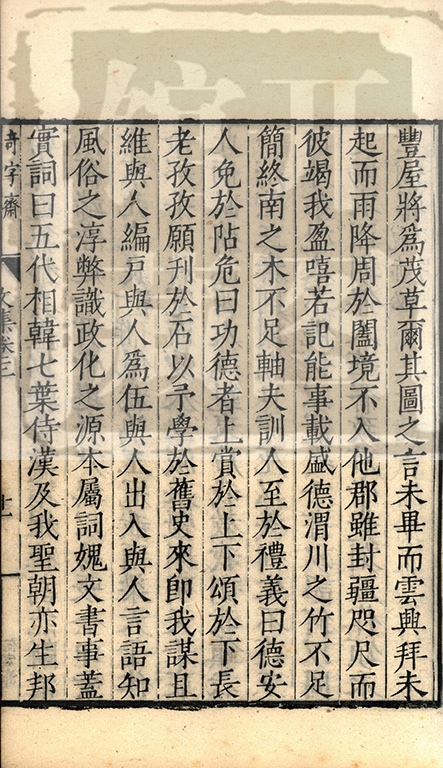 豐屋將爲茂草爾其圖之言未畢而雲興拜未
起而雨降周於闔境不入他郡雖封疆咫尺而
彼竭我盈嘻若記能事載盛德渭川之竹不足
簡終南之木不足軸夫訓人至於禮義曰德安
人免於阽危曰功德者上賞於上下頌於下長
老孜孜願刊於石以予學於舊史來卽我謀且
維與人編戸與人爲伍與人出入與人言語知
風俗之淳弊識政化之源本屬詞媿文書事蓋
實詞曰五代相韓七葉侍漢及我聖朝亦生邦
奇字齋
文集卷三
十一